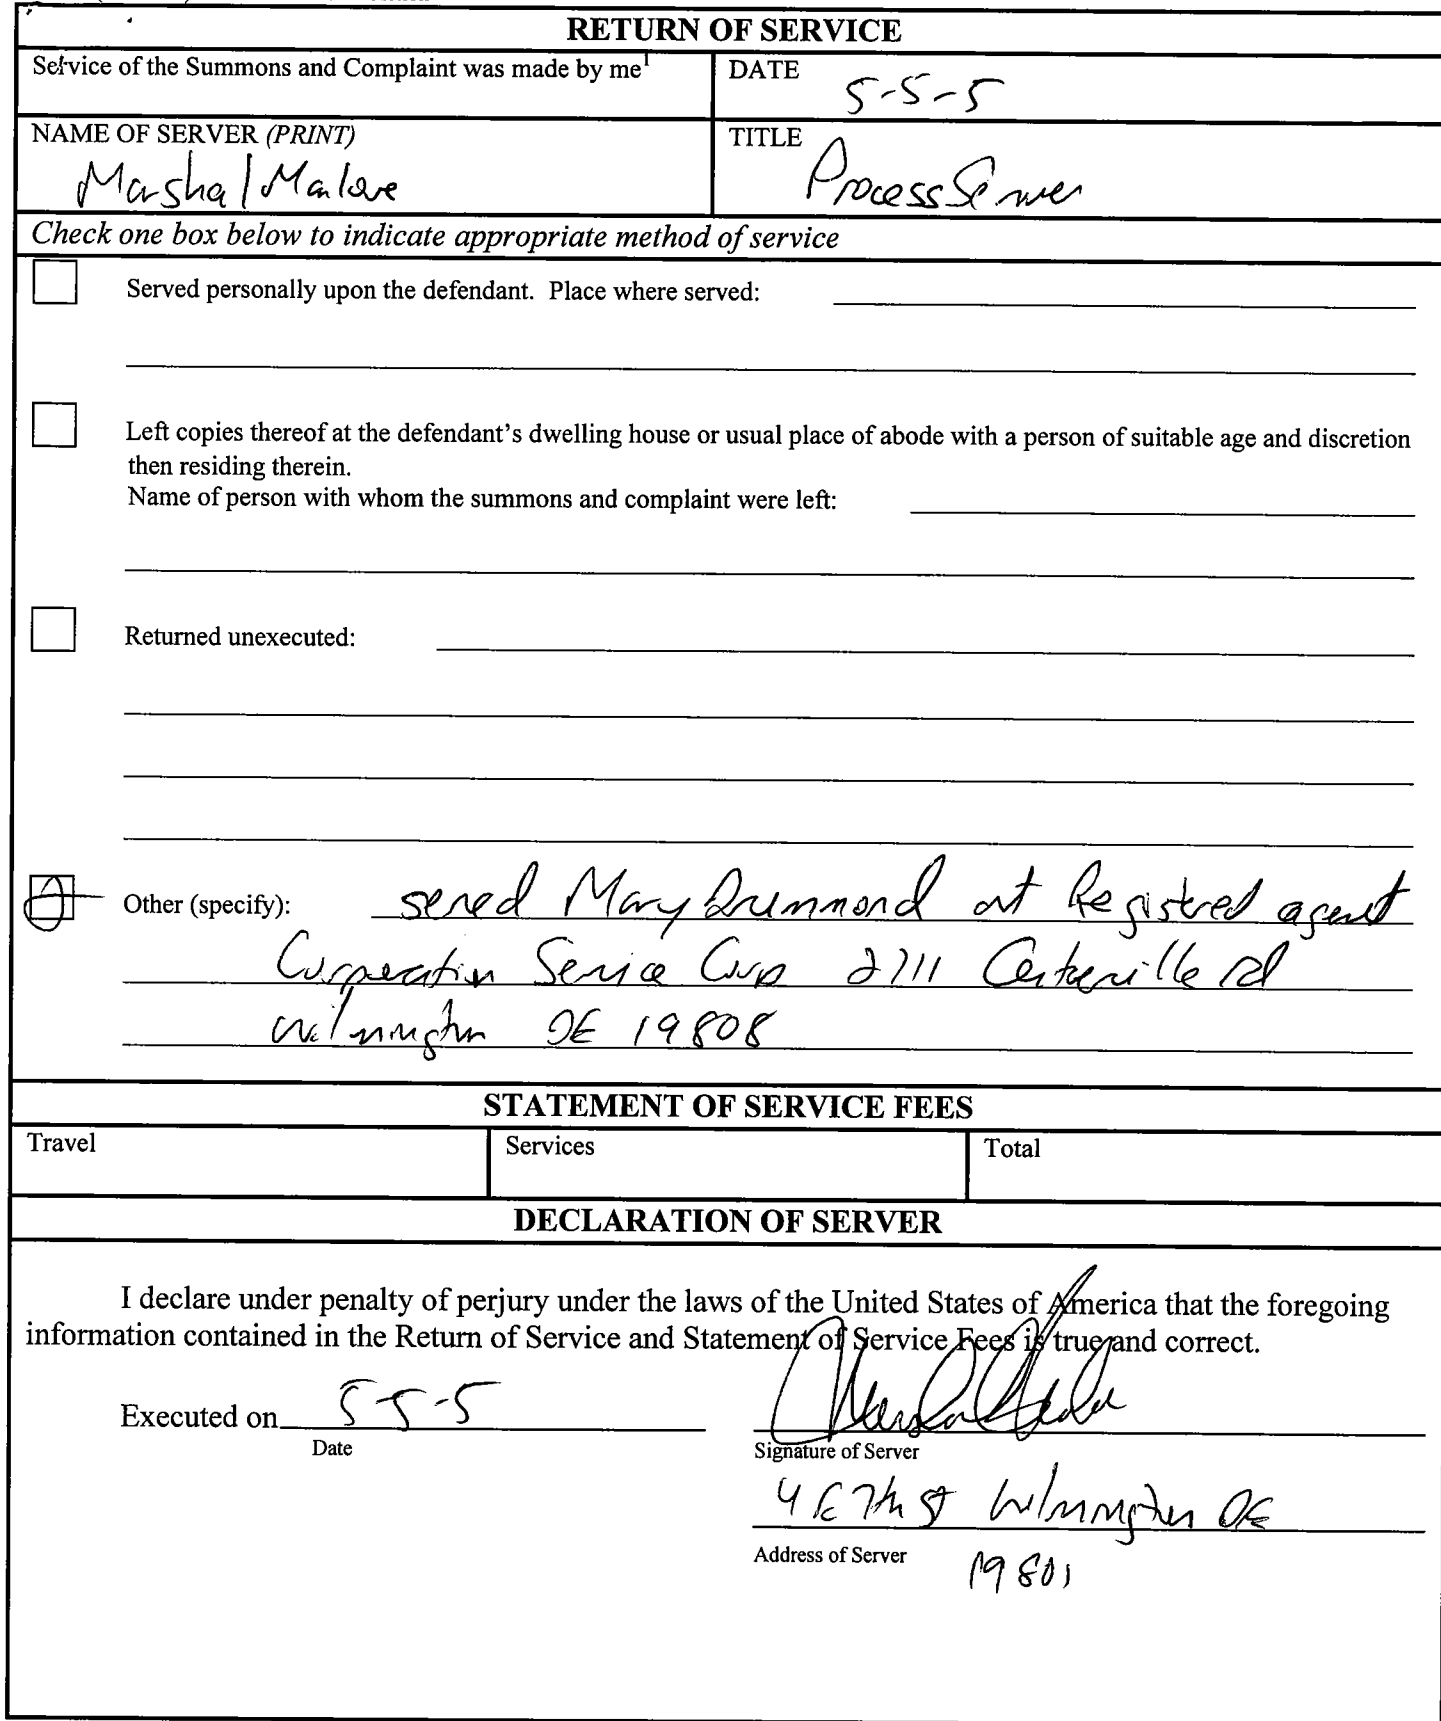 RETURN OF SERVICE
Service of the Summons and Complaint was made by me1
DATE
5-5-5
NAME OF SERVER (PRINT)
Marshal Manlove
TITLE
Process Server
Check one box below to indicate appropriate method of service
Served personally upon the defendant. Place where served:
Left copies thereof at the defendant's dwelling house or usual place of abode with a person of suitable age and discretion
then residing therein.
Name of person with whom the summons and complaint were left:
Returned unexecuted:
Other (specify): served Mary Drummond at Registered agent
Corporation Service Corp 2711 Centerville Rd
Wilmington DE 19808
STATEMENT OF SERVICE FEES
Travel
Services
Total
DECLARATION OF SERVER
I declare under penalty of perjury under the laws of the United States of America that the foregoing
information contained in the Return of Service and Statement of Service Fees is true and correct.
Executed on 5-5-5
Date
Signature of Server
4 E 7th St Wilmington DE
Address of Server
19801